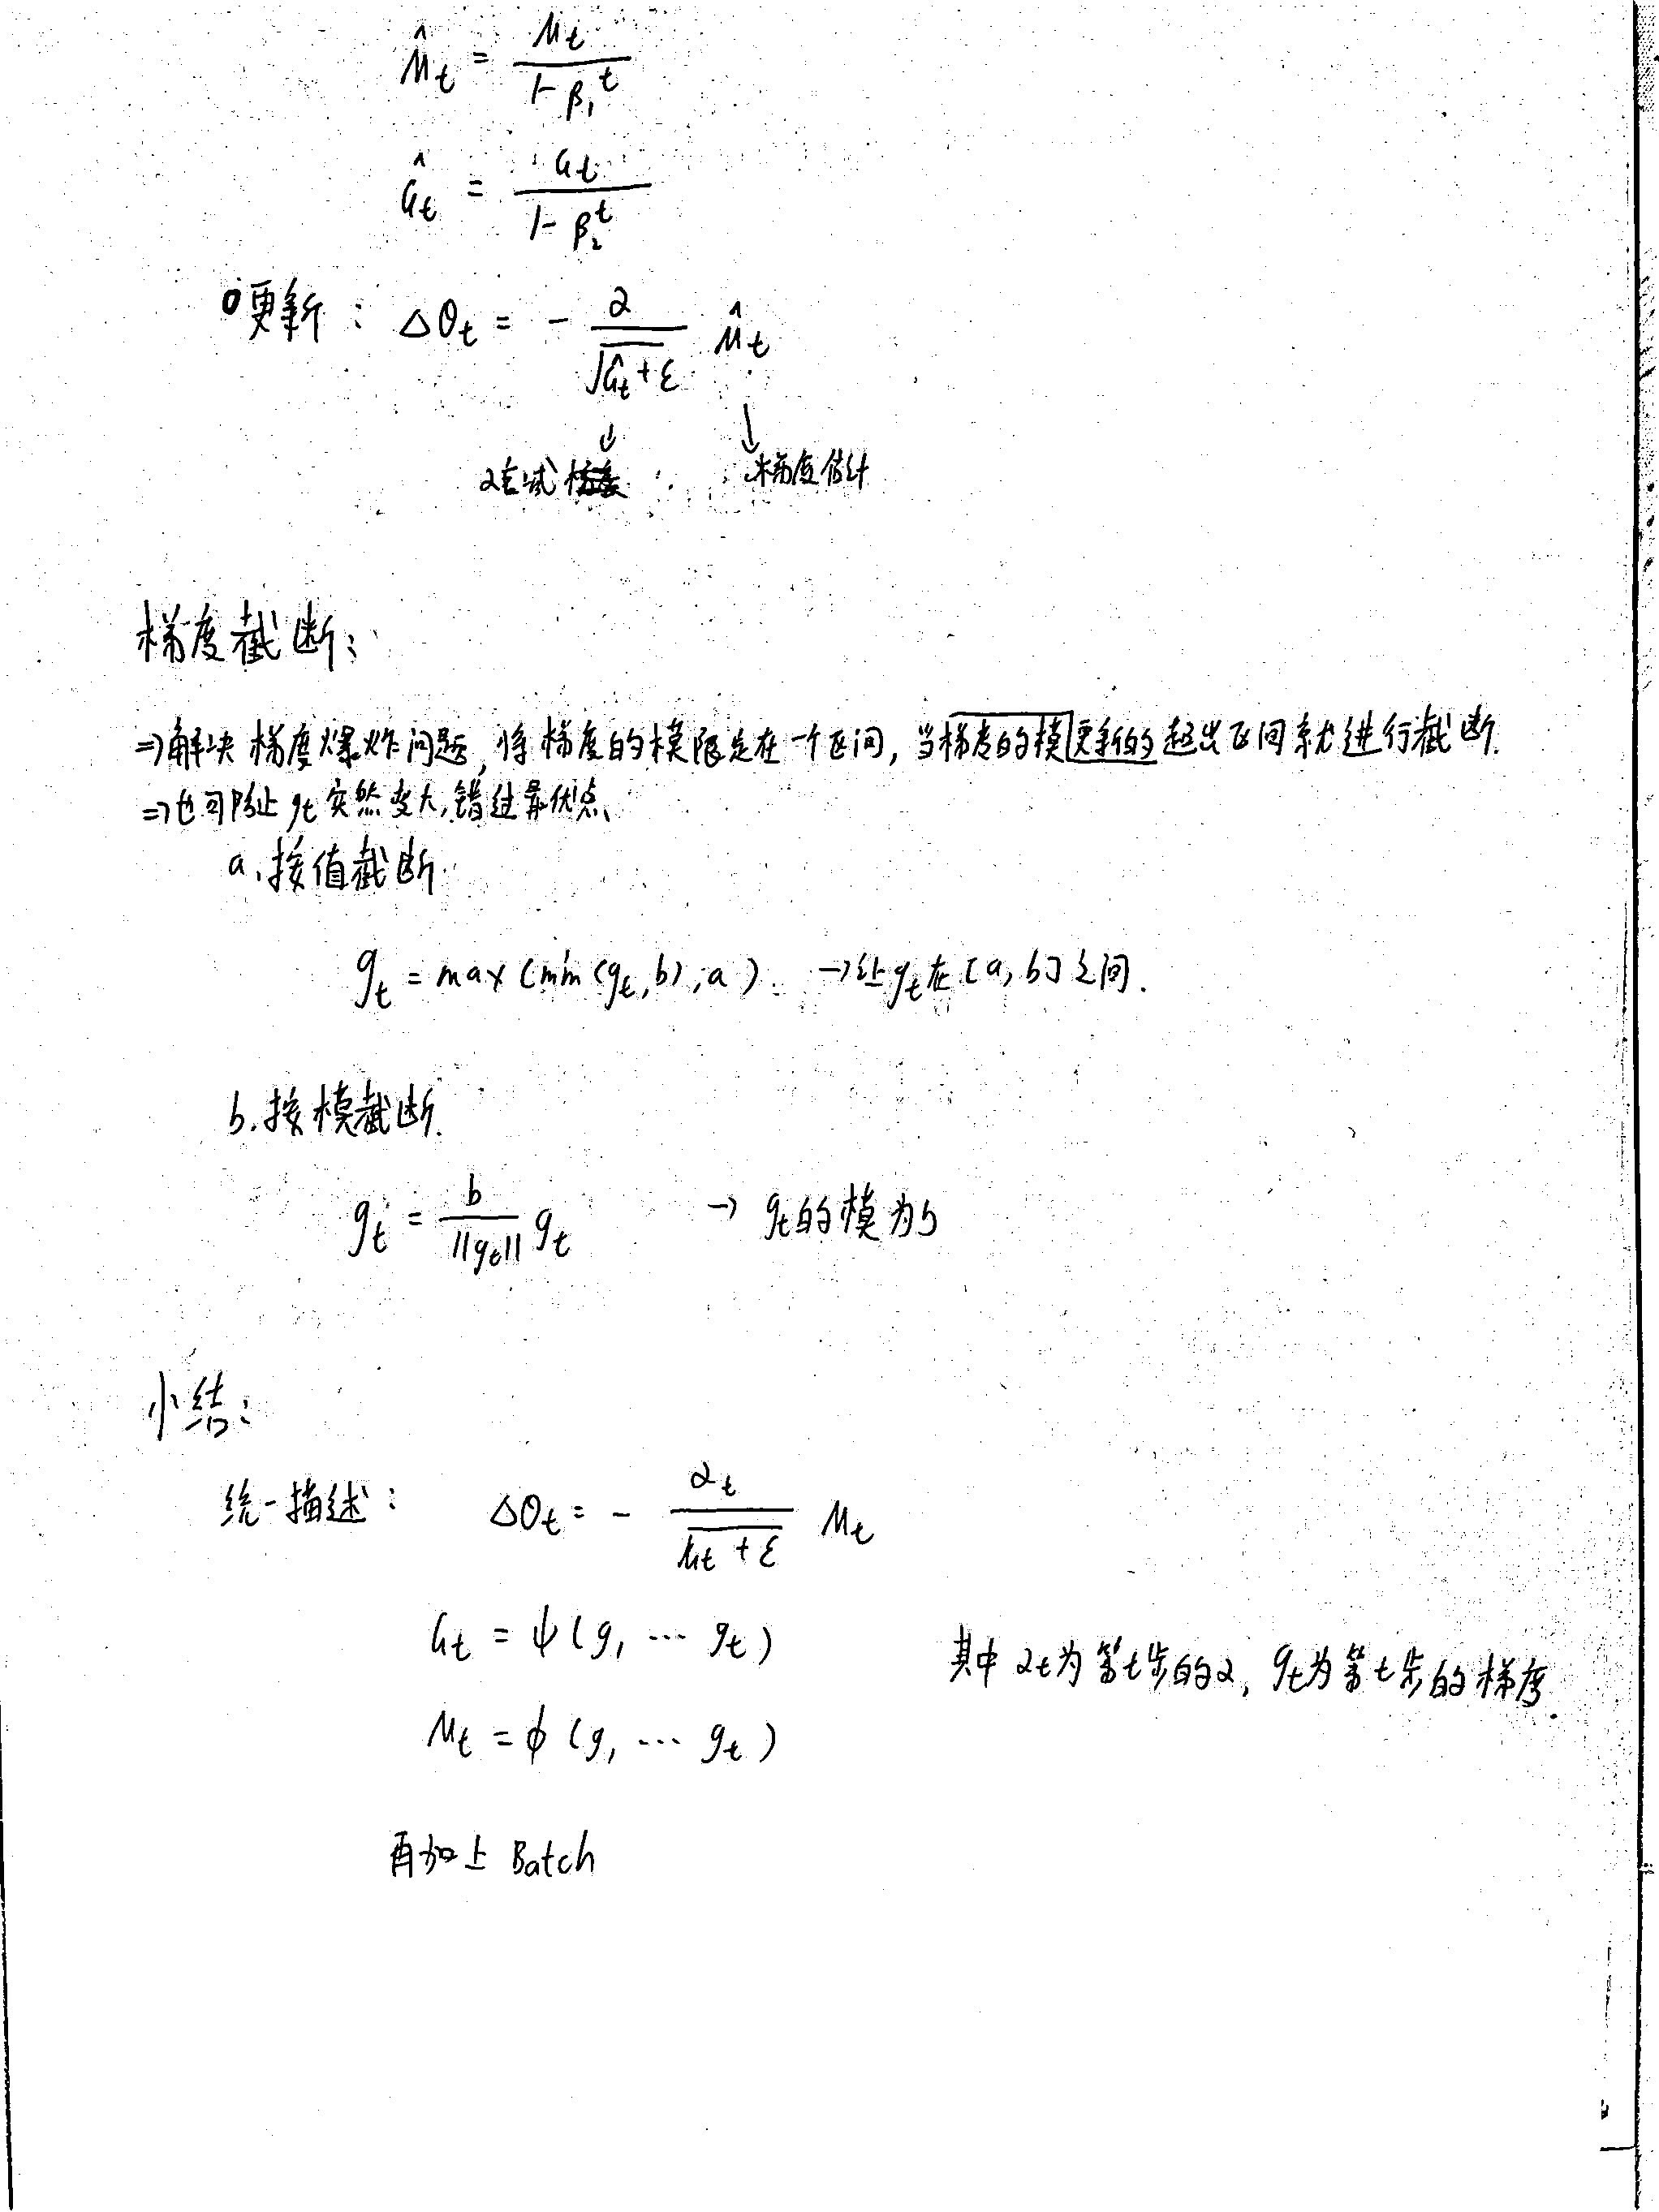 M̂t = Mt / (1-β₁^t)
Ĝt = Gt / (1-β₂^t)
更新: Δθt = - α / √(Ĝt+ε) M̂t
↓ ↓
α衰减 梯度估计
梯度截断:
⇒解决梯度爆炸问题,将梯度的模限定在一个区间,当梯度的模更新的超出区间就进行截断.
⇒也可防止gt突然变大,错过最优点、
a.按值截断
gt = max(min(gt,b),a). →让gt在[a,b]之间.
b.按模截断.
gt = b / ||gt|| gt → gt的模为b
小结:
统一描述: Δθt = - αt / √(Gt+ε) Mt
Gt = ψ(g₁ ··· gt)
其中αt为第t步的α, gt为第t步的梯度.
Mt = ϕ(g₁ ··· gt)
再加上 Batch